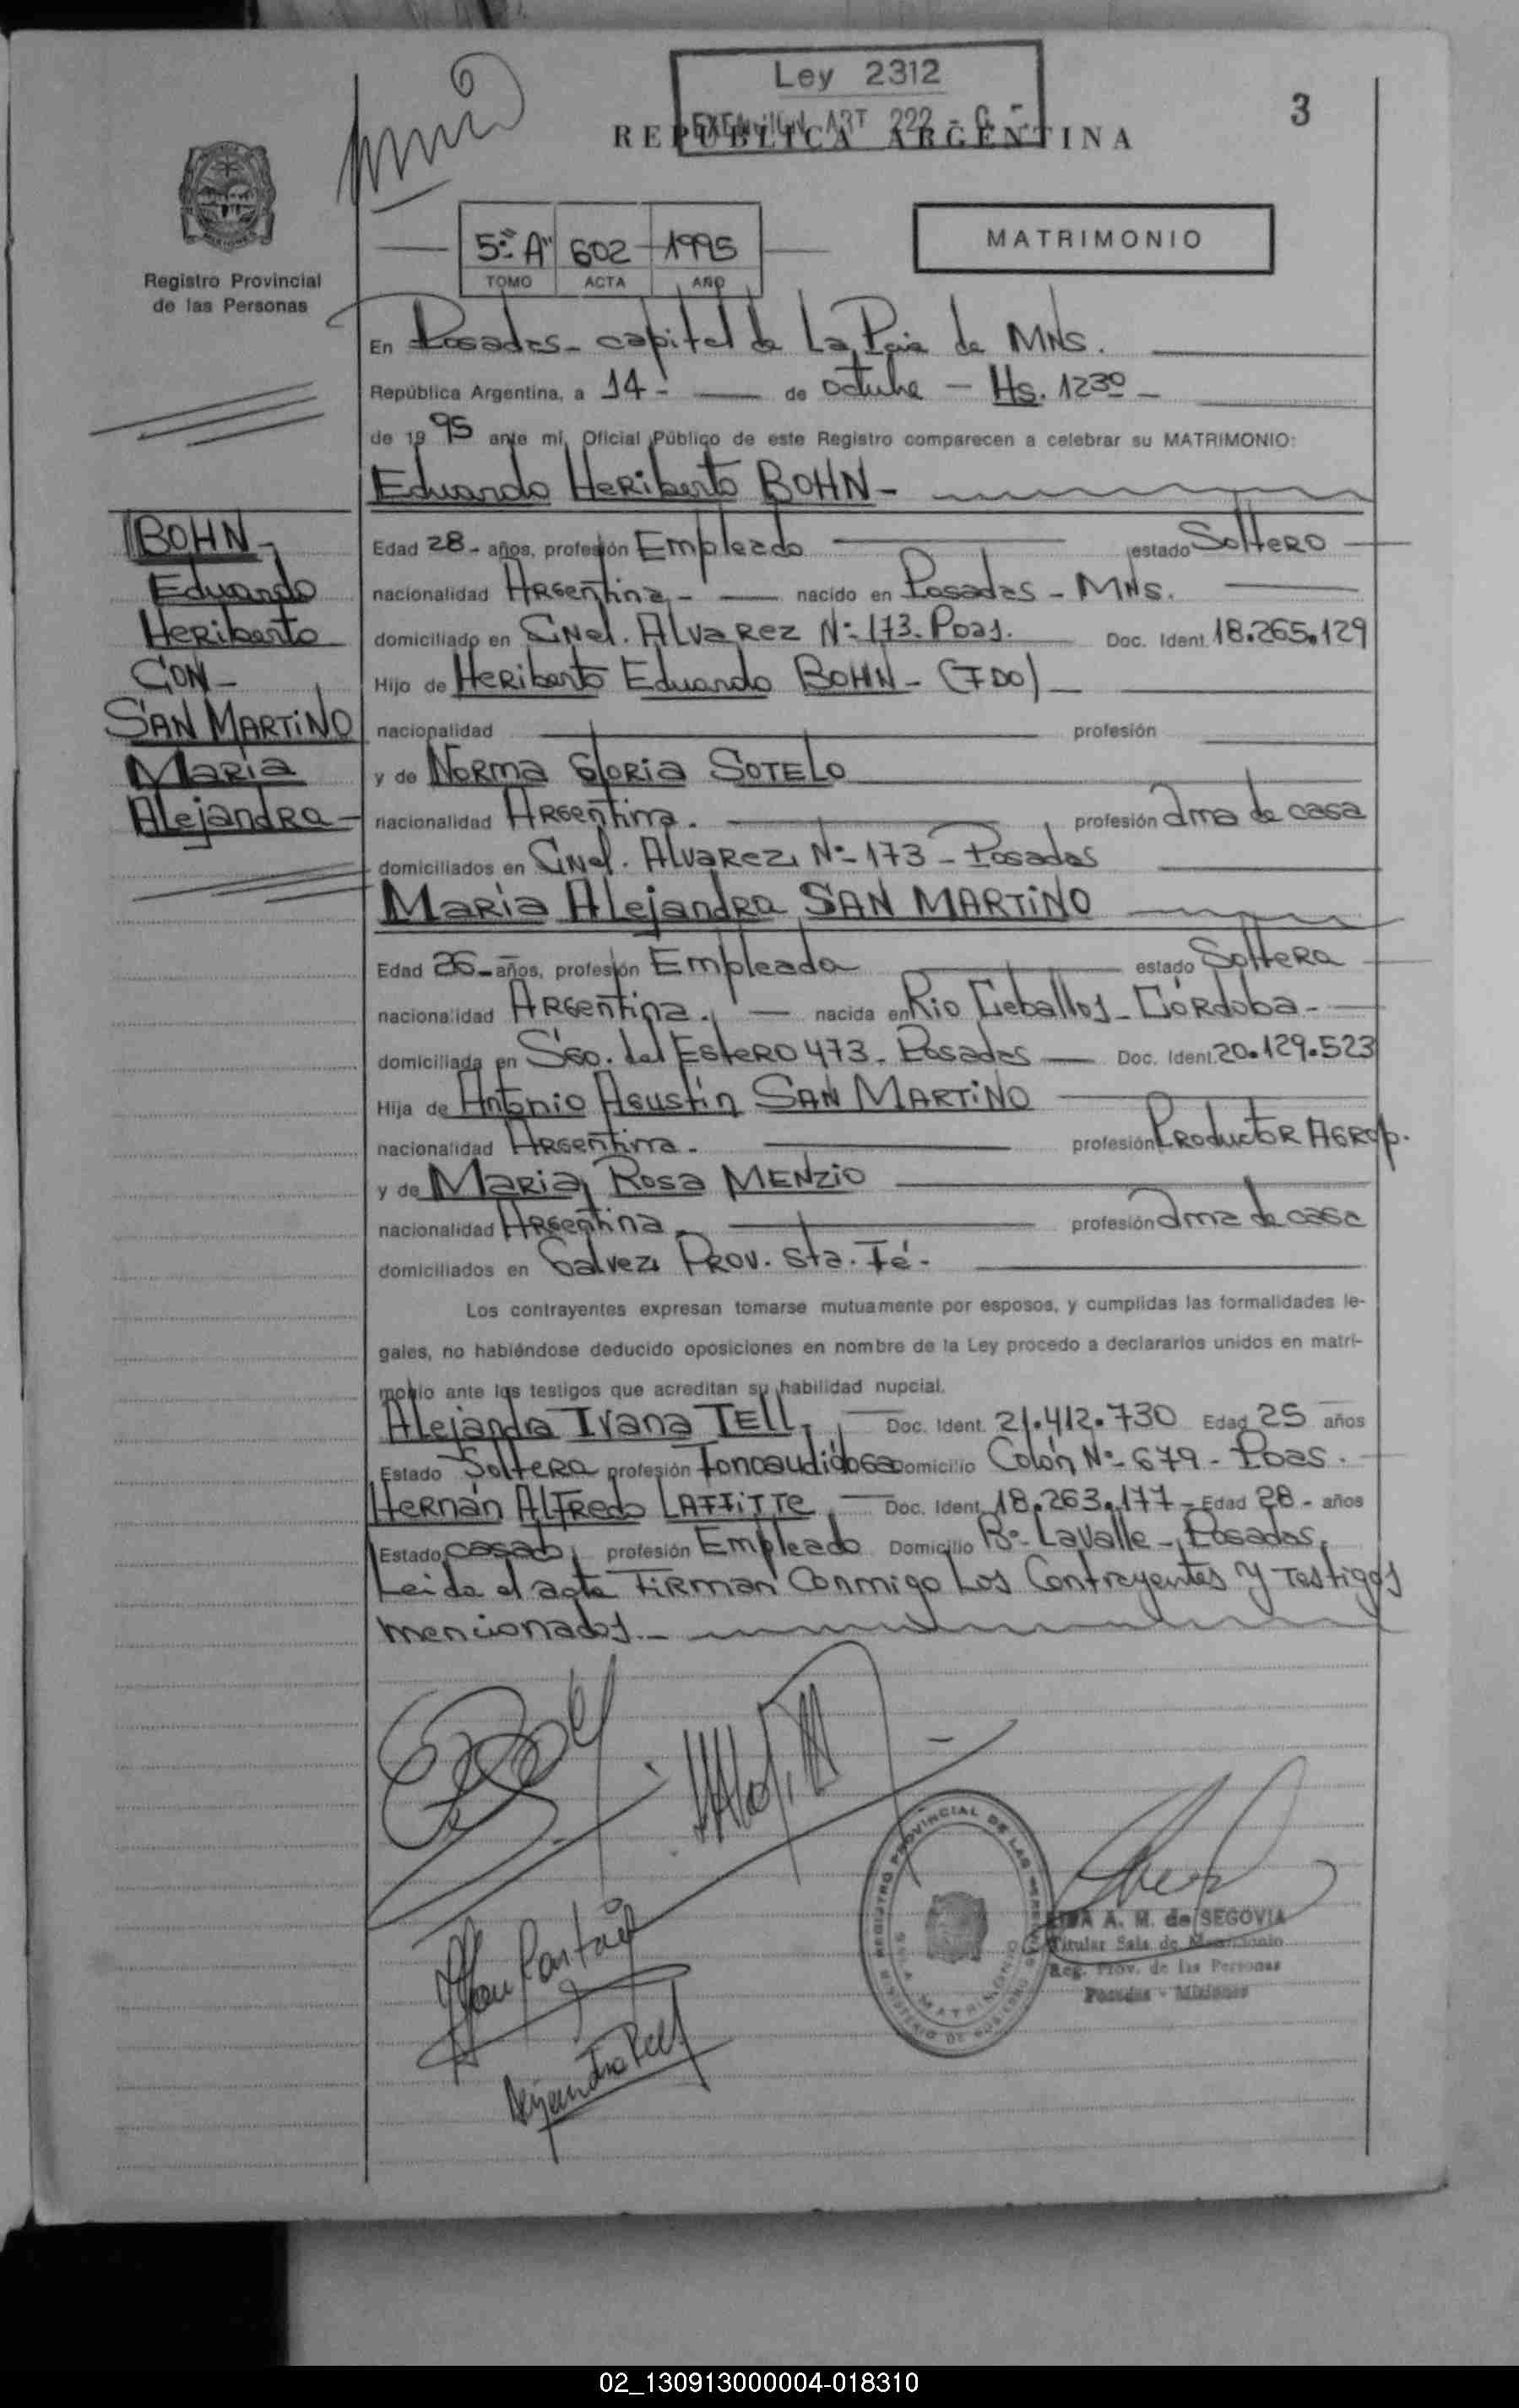 Ley 2312
EXENCION ART 222 - C -
REPUBLICA ARGENTINA
3
Registro Provincial
de las Personas
5º "A" 602 1995
TOMO ACTA AÑO
MATRIMONIO
En Posadas - capital de La Pcia de MNs.
República Argentina, a 14 - de octubre - Hs. 12 30 -
de 19 95 ante mí, Oficial Público de este Registro comparecen a celebrar su MATRIMONIO:
Eduardo Heriberto BOHN -
BOHN -
Eduardo
Heriberto
CON -
SAN MARTINO
Maria
Alejandra -
Edad 28 - años, profesión Empleado estado Soltero
nacionalidad Argentina - nacido en Posadas - MNs.
domiciliado en Cnel. Alvarez Nº 173. Pdas. Doc. Ident. 18.265.129
Hijo de Heriberto Eduardo BOHN - (FDO) -
nacionalidad profesión
y de Norma Gloria SOTELO
nacionalidad Argentina. profesión ama de casa
domiciliados en Cnel. Alvarez Nº - 173 - Posadas
Maria Alejandra SAN MARTINO
Edad 26 - años, profesión Empleada estado Soltera
nacionalidad Argentina. - nacida en Rio Ceballos - Córdoba -
domiciliada en Sgo. del Estero 473 - Posadas Doc. Ident. 20.129.523
Hija de Antonio Agustín SAN MARTINO
nacionalidad Argentina. profesión Productor Agrop.
y de Maria Rosa MENZIO
nacionalidad Argentina profesión ama de casa
domiciliados en Galvez Prov. Sta. Fé -
Los contrayentes expresan tomarse mutuamente por esposos, y cumplidas las formalidades le-
gales, no habiéndose deducido oposiciones en nombre de la Ley procedo a declararlos unidos en matri-
monio ante los testigos que acreditan su habilidad nupcial.
Alejandra Ivana TELL, Doc. Ident. 21.412.730 Edad 25 años
Estado Soltera profesión Fonoaudióloga Domicilio Colón Nº - 679 - Pdas.
Hernán Alfredo LAFFITTE Doc. Ident. 18.263.177 - Edad 28 - años
Estado casado, profesión Empleado Domicilio Bº Lavalle - Posadas,
Leida el acta Firman Conmigo Los Contrayentes y Testigos
mencionados. -
REGISTRO PROVINCIAL DE LAS PERSONAS
SALA MATRIMONIO
MINISTERIO DE GOBIERNO
A. M. de SEGOVIA
Titular Sala de Matrimonio
Reg. Prov. de las Personas
Posadas - Misiones
Alejandra Tell
02_130913000004-018310